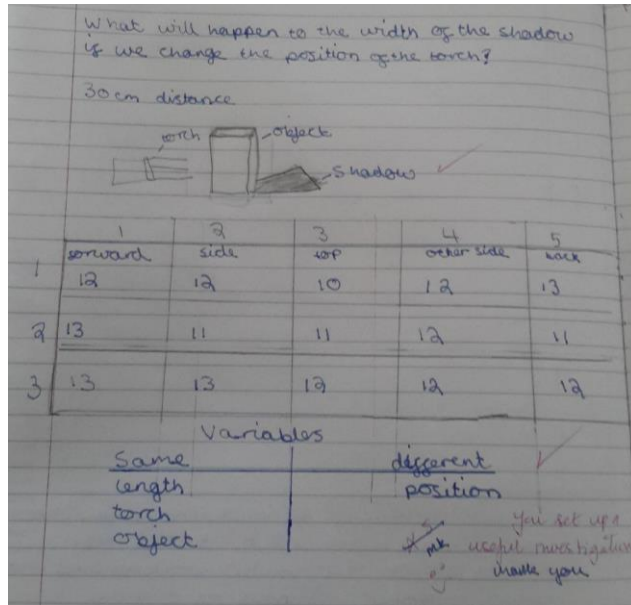 What will happen to the width of the shadow
if we change the position of the torch?
30 cm distance
torch
object
shadow
1 2 3 4 5
forward side top other side back
1 12 12 10 12 13
2 13 11 11 12 11
3 13 13 12 12 12
Variables
Same different
length position
torch
object
You set up a
mk useful investigation
thank you